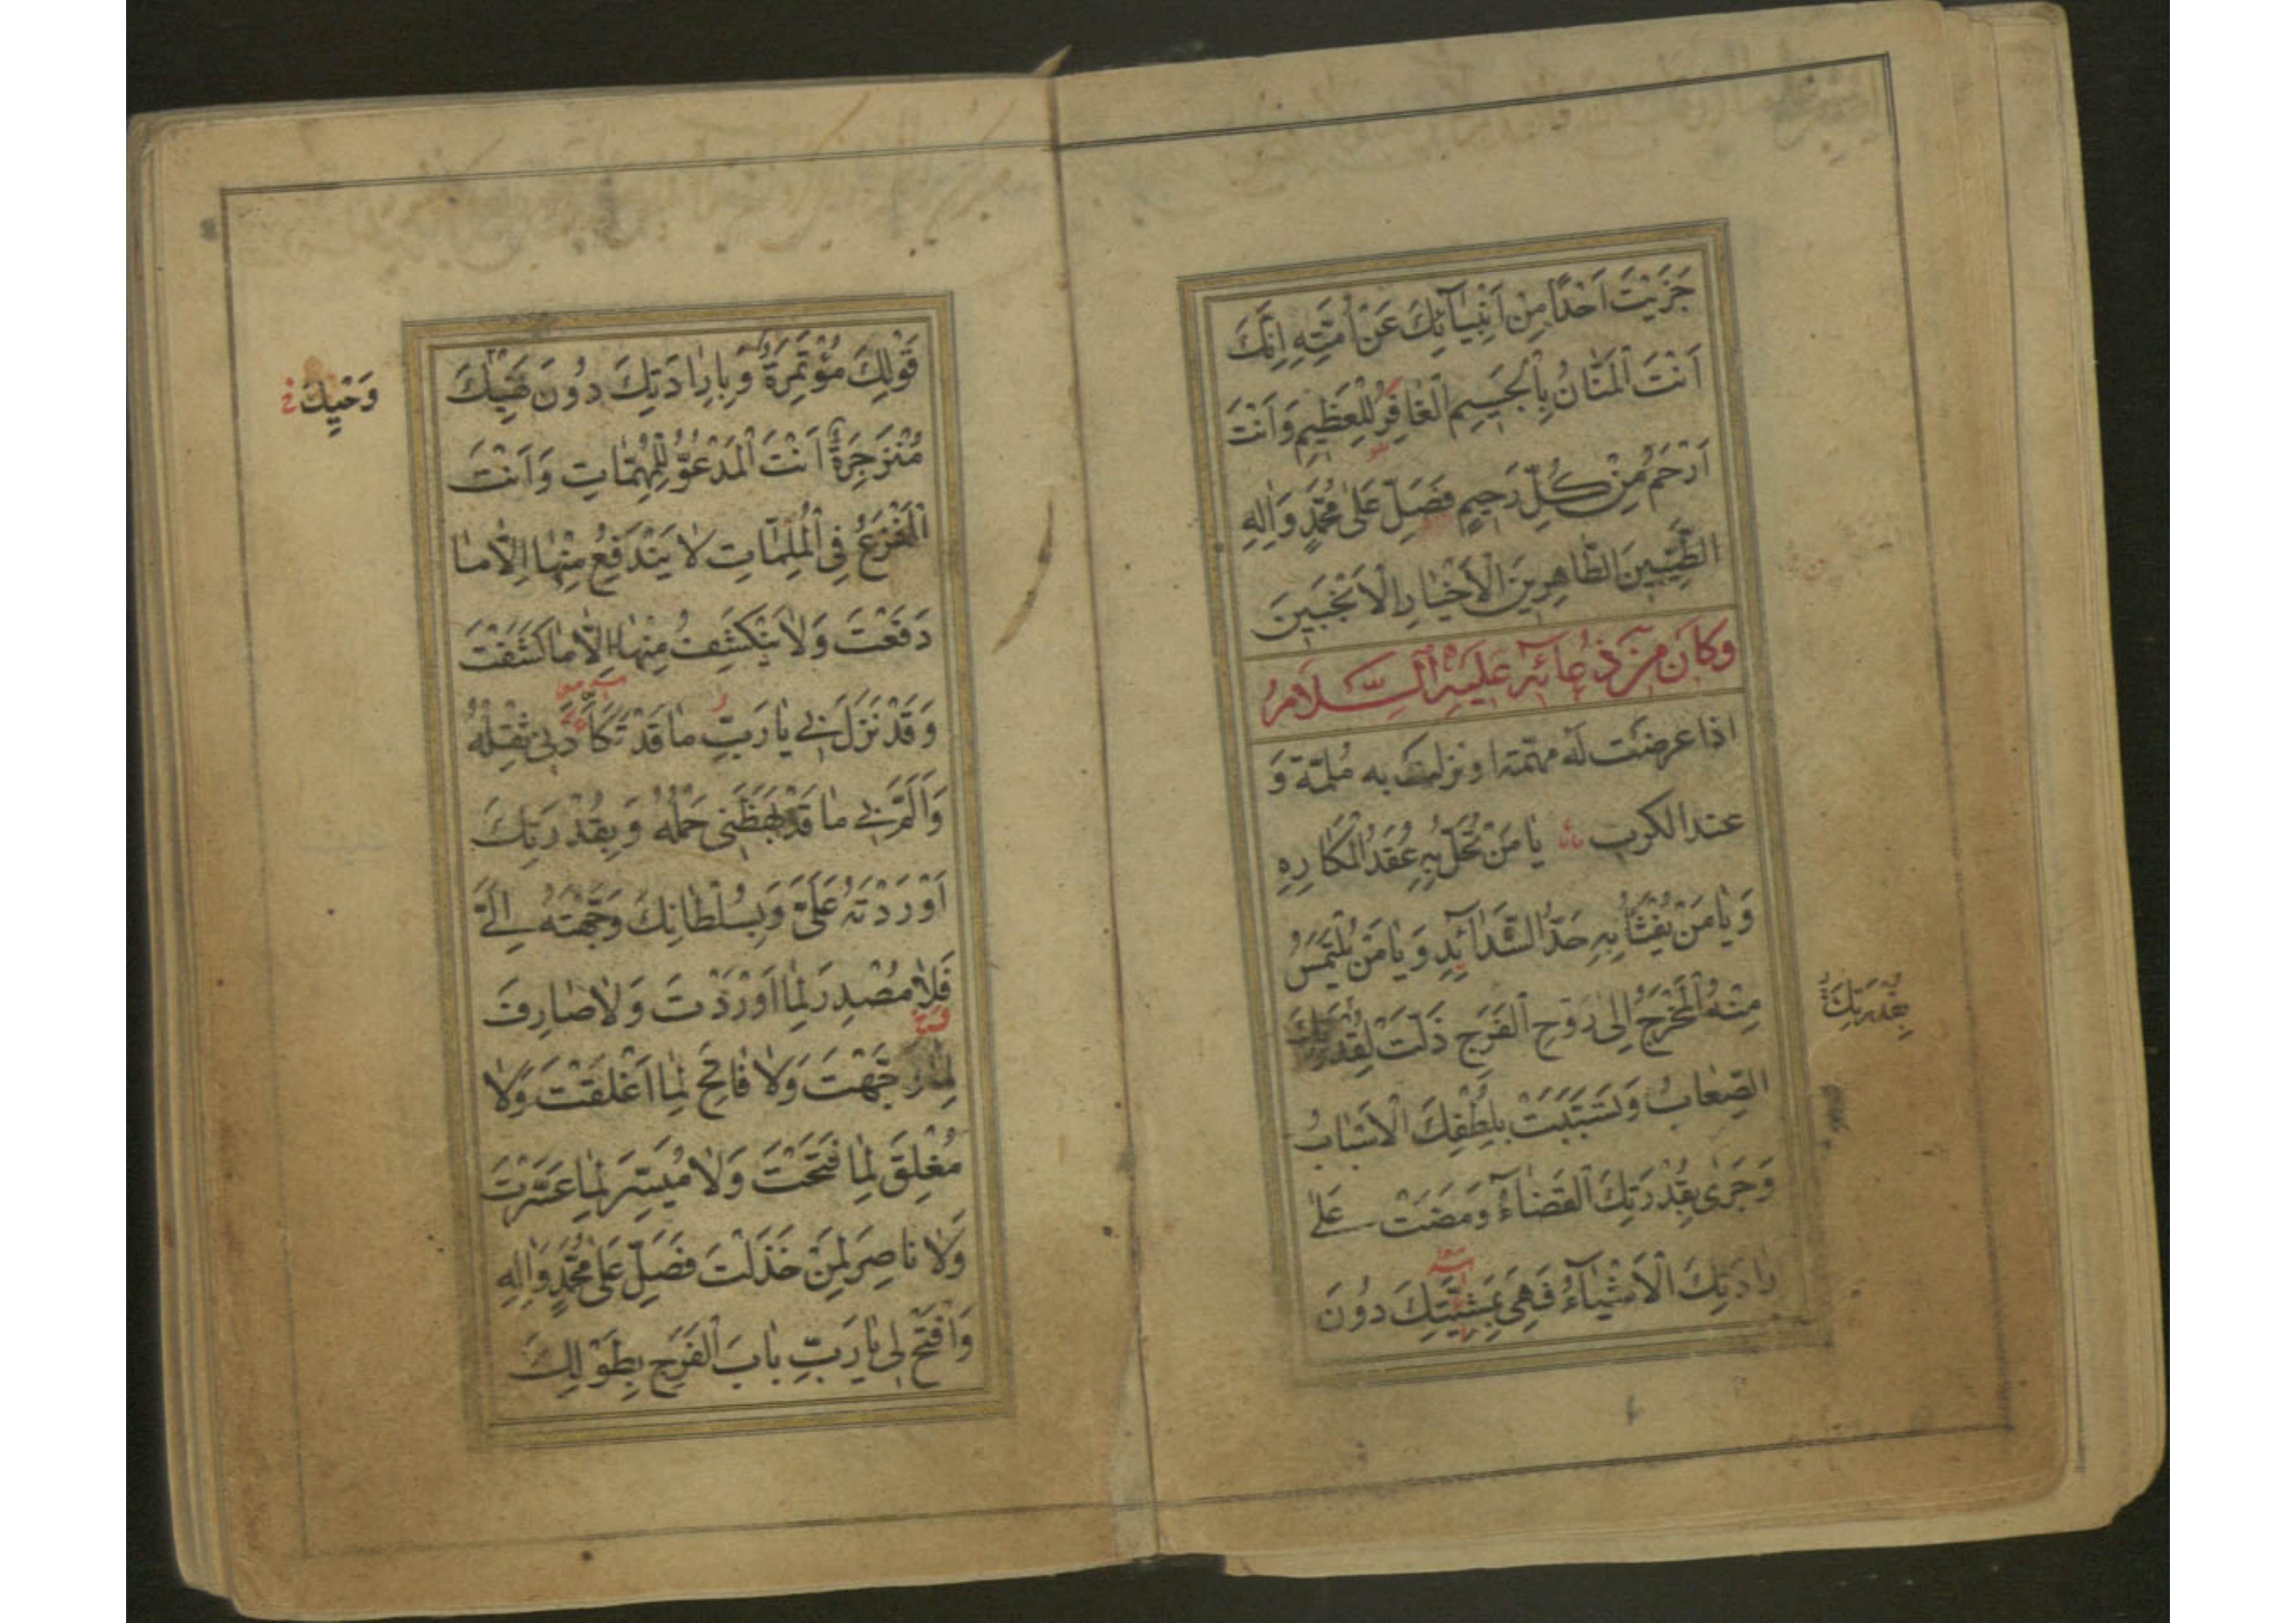 جَزَيْتَ اَحَدًا مِنْ اَنْبِيآئِكَ عَنْ اُمَّتِهِ اِنَّكَ
اَنْتَ الْمَنّانُ بِالْجَسيمِ الْغافِرُ لِلْعَظيمِ وَاَنْتَ
اَرْحَمُ مِنْ كُلِّ رَحيمٍ فَصَلِّ عَلى مُحَمَّدٍ وَالِهِ
الطَّيِّبينَ الطّاهِرينَ الْاَخْيارِ الْاَنْجَبينَ
وَكانَ مِنْ دُعائِهِ عَلَيْهِ السَّلامُ
اذا عرضت له مهمّة او نزلت به مُلمّة وَ
عند الكرب يا مَنْ تُحَلُّ بِهِ عُقَدُ الْمَكارِهِ
وَيا مَنْ يُفْثَأُ بِهِ حَدُّ الشَّدآئِدِ وَيا مَنْ يُلْتَمَسُ
مِنْهُ الْمَخْرَجُ اِلى رَوْحِ الْفَرَجِ ذَلَّتْ لِقُدْرَتِكَ
الصِّعابُ وَتَسَبَّبَتْ بِلُطْفِكَ الْاَسْبابُ
وَجَرى بِقُدْرَتِكَ الْقَضآءُ وَمَضَتْ عَلى
رادَتِكَ الْاَشْيآءُ فَهِيَ بِمَشِيَّتِكَ دُونَ
قَوْلِكَ مُؤْتَمِرَةٌ وَبِاِرادَتِكَ دُونَ نَهْيِكَ
وَحْيِكَ خ
مُنْزَجِرَةٌ اَنْتَ الْمَدْعُوُّ لِلْمُهِمّاتِ وَاَنْتَ
الْمَفْزَعُ فِي الْمُلِمّاتِ لا يَنْدَفِعُ مِنْها اِلّا ما
دَفَعْتَ وَلا يَنْكَشِفُ مِنْها اِلّا ما كَشَفْتَ
وَقَدْ نَزَلَ بي يا رَبِّ ما قَدْ تَكَاَّدَني ثِقْلُهُ
وَاَلَمَّ بي ما قَدْ بَهَظَني حَمْلُهُ وَبِقُدْرَتِكَ
اَوْرَدْتَهُ عَلَيَّ وَبِسُلْطانِكَ وَجَّهْتَهُ اِلَيَّ
فَلا مُصْدِرَ لِما اَوْرَدْتَ وَلا صارِفَ
لِما وَجَّهْتَ وَلا فاتِحَ لِما اَغْلَقْتَ وَلا
مُغْلِقَ لِما فَتَحْتَ وَلا مُيَسِّرَ لِما عَسَّرْتَ
وَلا ناصِرَ لِمَنْ خَذَلْتَ فَصَلِّ عَلى مُحَمَّدٍ وَالِهِ
وَافْتَحْ لي يا رَبِّ بابَ الْفَرَجِ بِطَوْلِكَ